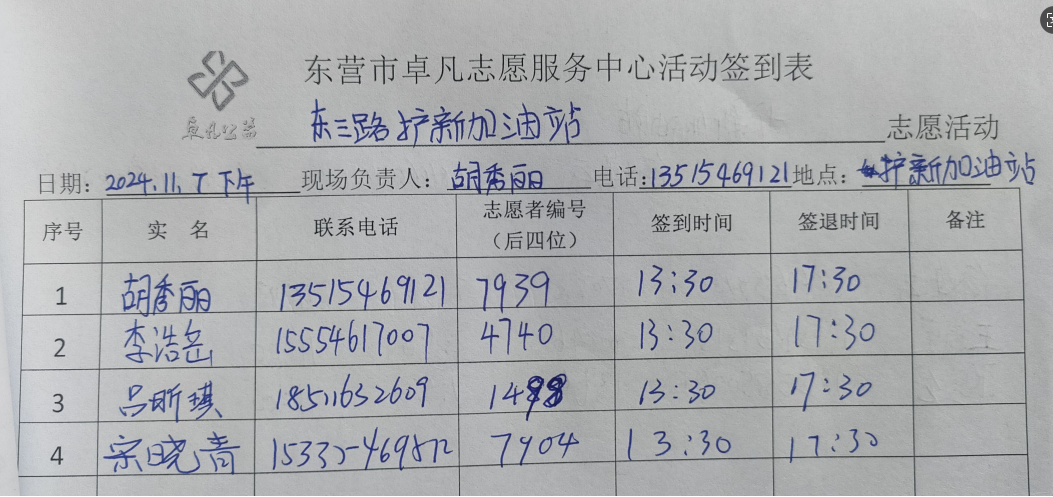 东营市卓凡志愿服务中心活动签到表
卓凡公益
东三路护新加油站 志愿活动
日期：2024.11.7下午 现场负责人：胡秀丽 电话：13515469121 地点：护新加油站
序号 实 名 联系电话 志愿者编号（后四位） 签到时间 签退时间 备注
1 胡秀丽 13515469121 7939 13:30 17:30
2 李浩岳 15554617007 4740 13:30 17:30
3 吕昕琪 18511632609 13:30 17:30
4 宋晓青 7904 13:30 17:30